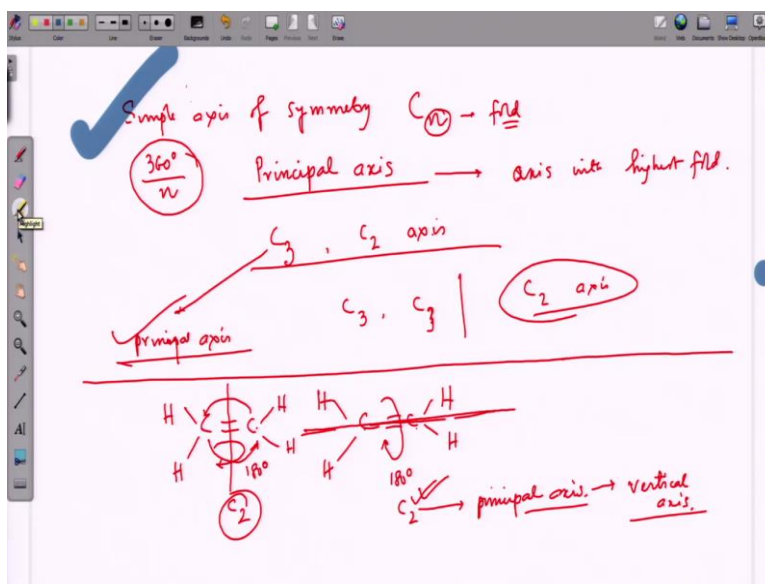 Stylus Color Line Eraser Backgrounds Undo Redo Pages Previous Next Erase Board Web Documents Show Desktop
Simple axis of symmetry Cn → fold
360°/n Principal axis → axis with highest fold.
C3, C2 axis
C3, C3 | C2 axis
principal axis
H H H H
C = C C = C
H H H H
180° 180°
C2 C2 → principal axis. → vertical axis.
Highlight